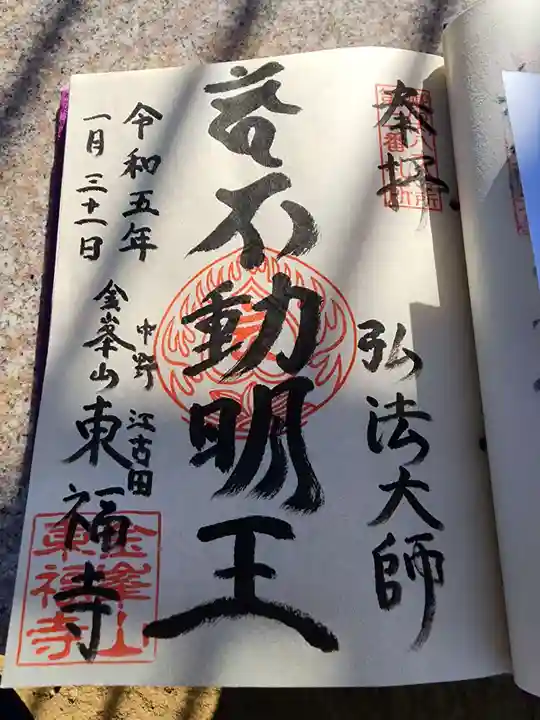 奉拝
弘法大師
不動明王
令和五年
一月三十一日
中野 江古田
金峯山 東福寺
金峯山
東福寺